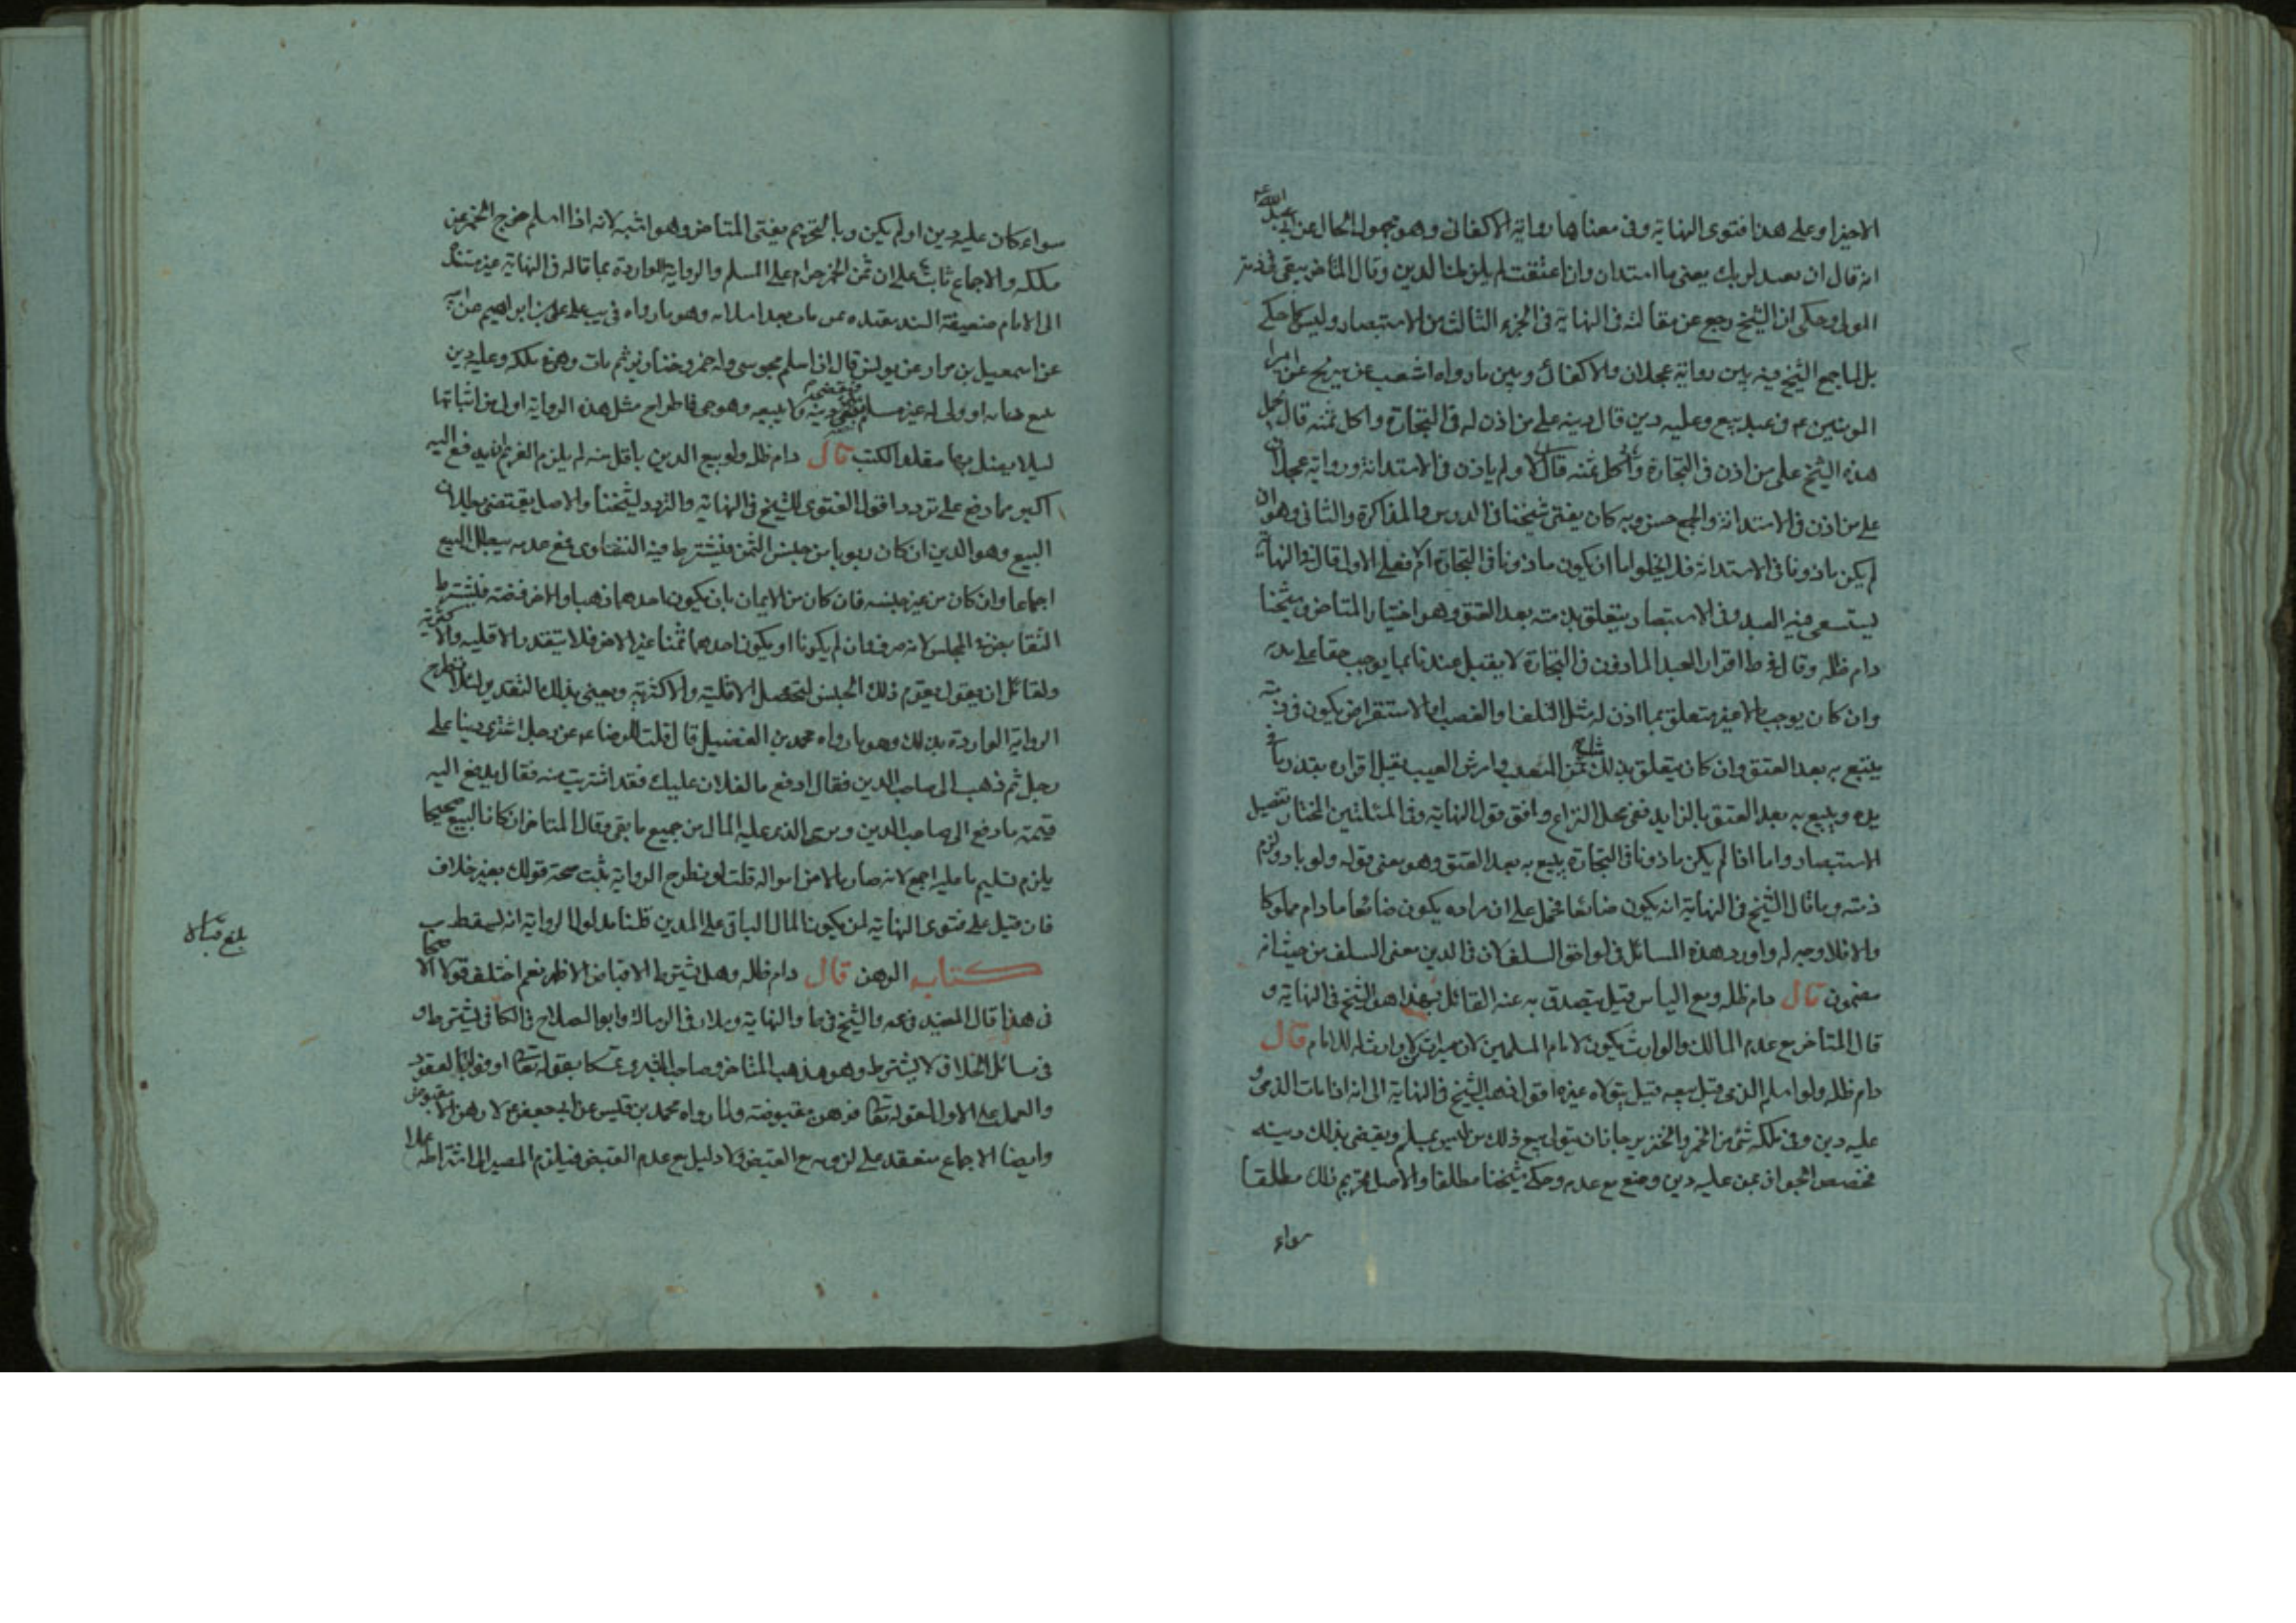 الاخيرا وعلى هذا فتوى النهاية وفى معناها رواية الاكفانى وهو مجهول الحال عن ابى عبد الله ع
انه قال ان بعبد لربك يعنى ما استدان وان اعتقت لم يلزمنا الدين وقال المتاخر يبقى فى ذمة
المولى وحكى ان الشيخ رجع عن مقالته فى النهاية فى الجزء الثالث من الاستبصار وليس كما حكى
بل انما جمع الشيخ فيه بين رواية عجلان والاكفانى وبين ما رواه اشعب عن شريح عن امير
المومنين ع فى عبد بيع وعليه دين قال دينه على من اذن له فى التجارة واكل ثمنه قال حمل
هذه الشيخ على من اذن فى التجارة واكل ثمنه قال ولم ياذن فى الاستدانة ورواية عجلان
على من اذن فى الاستدانة والجمع حسن وبه كان يفتى شيخنا فى الدروس والمذاكرة والثانى وهو ان
لم يكن ماذونا فى الاستدانة فلا يخلو اما ان يكون ماذونا فى التجارة ام لا فعلى الاول قال فى النهاية
يستسعى فيه العبد وفى الاستبصار يتعلق بذمته بعد العتق وهو اختيار المتاخر وشيخنا
دام ظله وقال فى ط اقرار العبد الماذون فى التجارة لا يقبل عندنا بما يوجب حقا على بدنه
وان كان يوجب مالا غير متعلق بما اذن له مثل التلف او الغصب او الاستقراض يكون فى ذمته
يتبع به بعد العتق وان كان يتعلق بذلك مثل ثمن المبيع وارش العيب يقبل اقراره بقدر ما فى
يده ويتبع به بعد العتق بالزايد ففى محل النزاع وافق قول النهاية وفى المسئلتين المختار تفصيل
الاستبصار واما اذا لم يكن ماذونا فى التجارة يتبع به بعد العتق وهو معنى قوله ولو بادر لزم
ذمته وما قال الشيخ فى النهاية انه يكون ضائعا محمل على ان مراده يكون ضائعا ما دام مملوكا
والا فلا وجه له واورد هذه المسائل فى لواحق السلف لان فى الدين معنى السلف من حيث انه
مضمون قال دام ظله ومع الياس قيل يتصدق به عنه القائل بهذا هو الشيخ فى النهاية و
قال المتاخر مع عدم المالك والوارث يكون لامام المسلمين لان ميراث من لا وارث له للامام قال
دام ظله ولو اسلم الذمى قبل بيعه قيل يتولاه غيره اقول ذهب الشيخ فى النهاية الى انه اذا مات الذمى و
عليه دين وفى ملكه شئ من الخمر والخنزير جاز ان يتولى بيع ذلك من ليس بمسلم ويقضى بذلك دينه
فخصص الجواز بمن عليه دين ومنع مع عدمه وحكى شيخنا مطلقا والاصل تحريم ذلك مطلقا
سواء
سواء كان عليه دين او لم يكن وبالتحريم يفتى المتاخر وهو اشبه لانه اذا اسلم خرج الخمر عن
ملكه والاجماع ثابت على ان ثمن الخمر حرام على المسلم والرواية الواردة بما قاله فى النهاية غير مستندة
الى الامام ضعيفة السند وهو ما رواه فى يب على بن ابراهيم عن ابيه
عن اسمعيل بن مرار عن يونس قال ان اسلم مجوسى وله خمر وخنازير ثم مات وهى فى ملكه وعليه دين
غير مسلم يقضى دينه ولا يبيعه وهو حى فاطراح مثل هذه الرواية اولى من اثباتها
ليلا يضل بها مقلد الكتب قال دام ظله ولو بيع الدين باقل منه لم يلزم الغريم ان يدفع اليه
اكبر مما دفع على تردد اقول الفتوى للشيخ فى النهاية والتردد لشيخنا والاصل يقتضى بطلان
البيع وهو الدين ان كان ربويا من جنس الثمن فيشترط فيه التساوى فمع عدمه يبطل البيع
اجماعا وان كان من غير جنسه فان كان من الاثمان بان يكون احدهما ذهبا والاخر فضة فيشترط
التقابض فى المجلس لانه صرف وان لم يكونا او يكون احدهما ثمنا غير الاخر فلا يتقدر الاقلية والاكثرية
ولقائل ان يقول يقوم ذلك الجنس لتحصل الاقلية والاكثرية ويعنى بذلك النقدين ولئلا تطرح
الرواية الواردة بذلك وهو ما رواه محمد بن الفضيل قال قلت للرضا ع عن رجل اشترى دينا على
رجل ثم ذهب الى صاحب الدين فقال ادفع ما لفلان عليك فقد اشتريت منه فقال يدفع اليه
قيمة ما دفع الى صاحب الدين وبرئ الذى عليه المال من جميع ما بقى وقال المتاخر ان كان البيع صحيحا
يلزم تسليم ما عليه اجمع لانه صار مالا من امواله قلت لو نطرح الرواية يثبت صحة قولك بغير خلاف
فان قيل على فتوى النهاية لمن يكون المال الباقى على المدين قلنا مدلول الرواية انه يسقط
كتاب الرهن قال دام ظله وهل يشترط الاقباض الاظهر نعم اختلف قولا الاصحاب
فى هذا قال المفيد فى عه والشيخ فى ما والنهاية وسلار فى الرسالة وابو الصلاح فى الكافى يشترط و
فى مسائل الخلاف لا يشترط وهو مذهب المتاخر وصاحب البشرى تمسكا بقوله تعالى اوفوا بالعقود
والعمل على الاول لقوله تعالى فرهن مقبوضة ولما رواه محمد بن قيس عن ابى جعفر ع لا رهن الا مقبوض
وايضا الاجماع منعقد على لزومه مع القبض ولا دليل مع عدم القبض فيلزم المصير الى اشتراطه عملا
بلغ قبالا